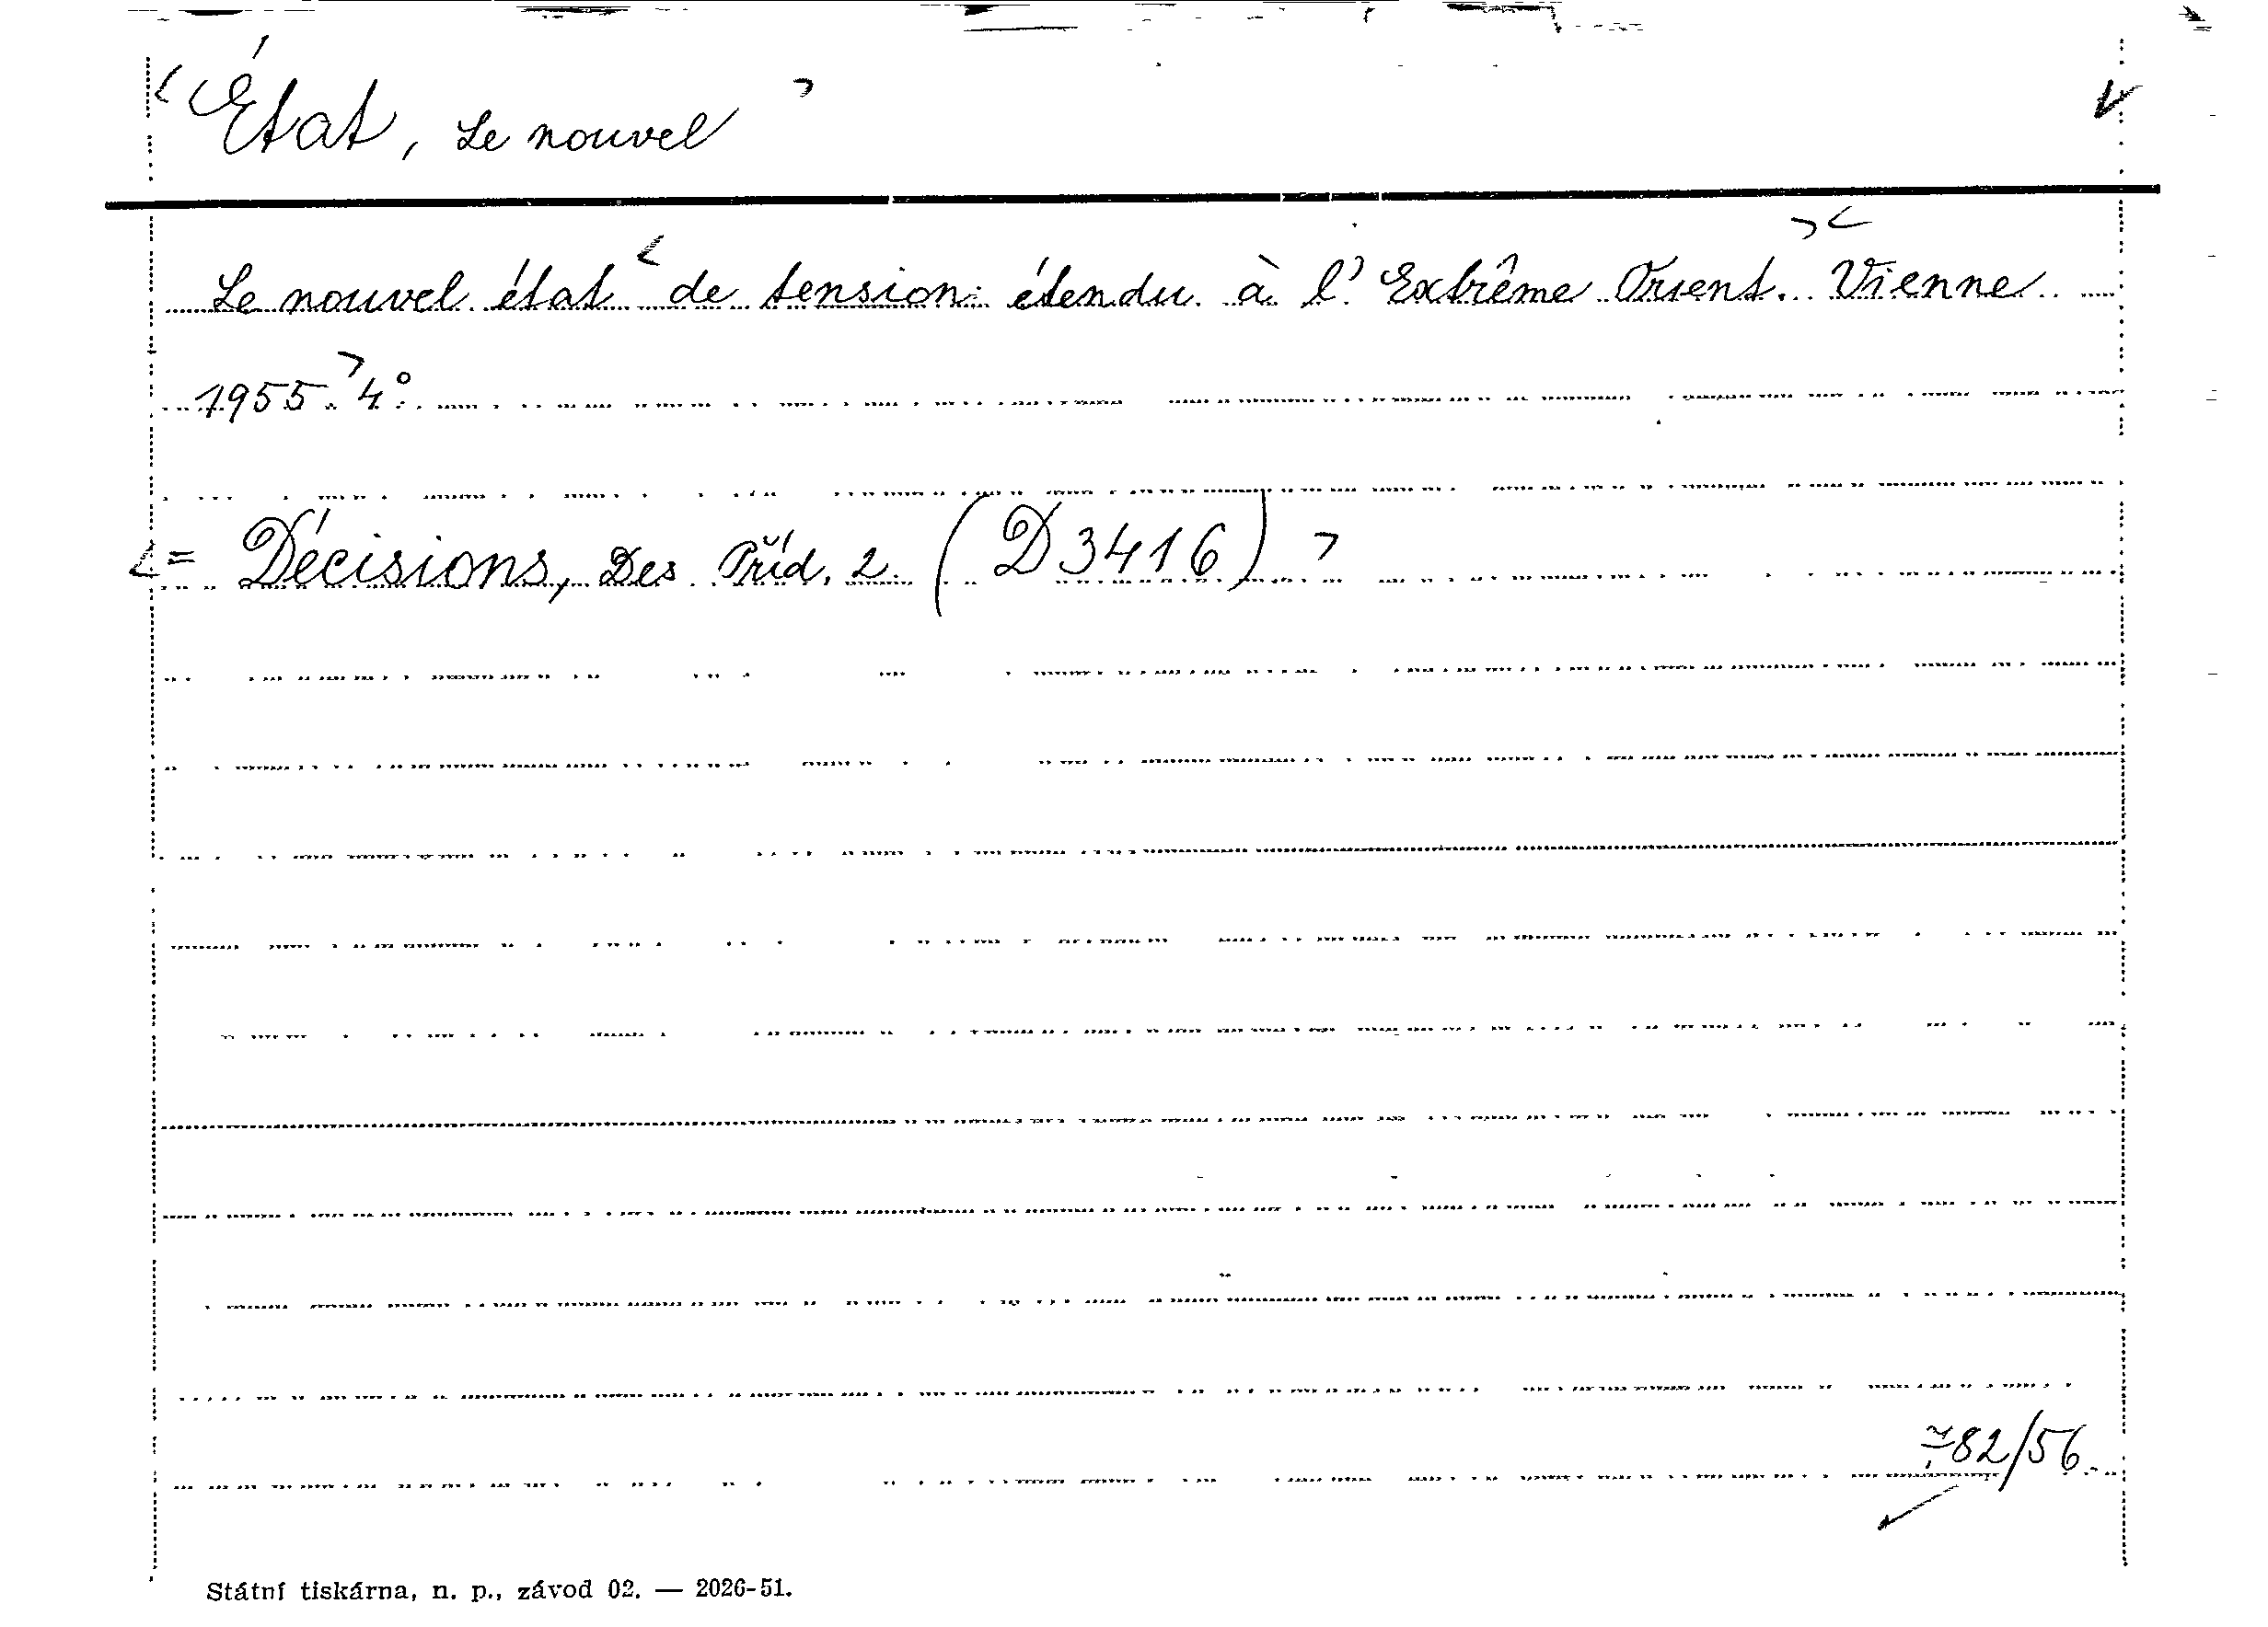 < État, Le nouvel > V
Le nouvel état < de tension étendu à l'Extrême Orient. > < Vienne
1955. > 4°.
< = Décisions, Des Příd. 2. (D 3416) >
82/56.
Státní tiskárna, n. p., závod 02. — 2026-51.